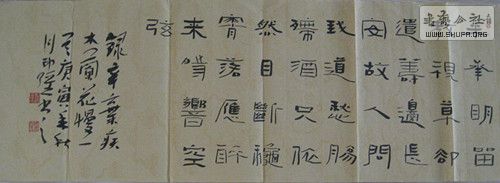 承明留
教視草卻
遣籌邊長
安故人問
我道愁腸
殢酒只依
然目斷龝
霄落應醉
來時響空
弦
錄辛棄疾
木蘭花慢一
庚寅年秋
月
WWW.SHUFA.ORG